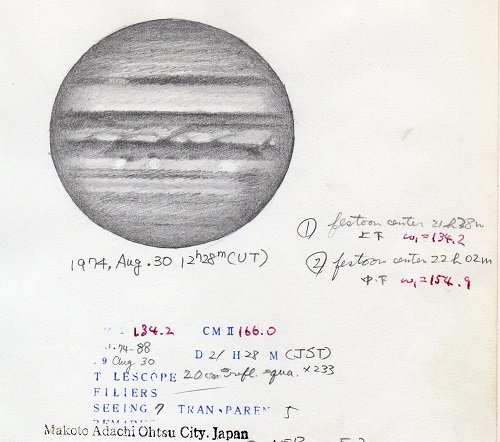 ① festoon center 21h28m
上下 ω₁=134.2
② festoon center 22h02m
中.下 ω₁=154.9
1974, Aug. 30 12h28m (UT)
134.2 CM II 166.0
74-88
9 Aug 30 D 21 H 28 M (JST)
T LESCOPE 20cm refl. equa. ×233
FILIERS
SEEING 7 TRAN·PAREN 5
Makoto Adachi Ohtsu City. Japan